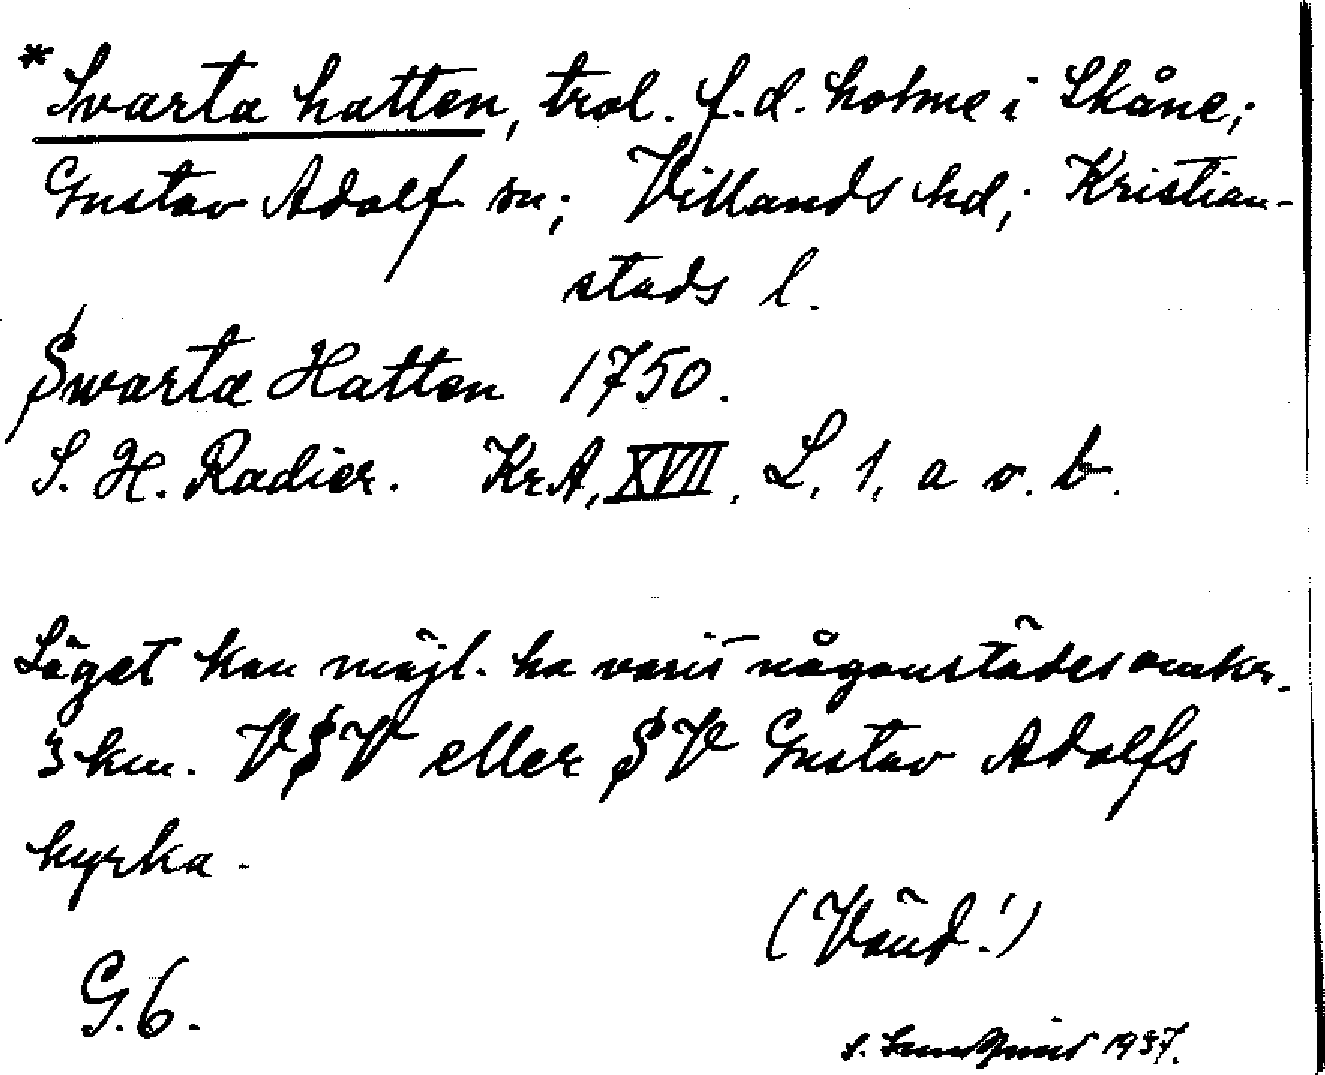 *Svarta hatten, trol. f.d. holme i Skåne;
Gustav Adolf sn; Villands hd; Kristian-
stads l.
Swarta Hatten 1750.
S. H. Radier. KrA, XVII, L, 1, a o. b.
Läget kan möjl. ha varit någonstädes omkr.
3 km. VSV eller SV Gustav Adolfs
kyrka.
(Vänd!)
G.6.
S. 1937.